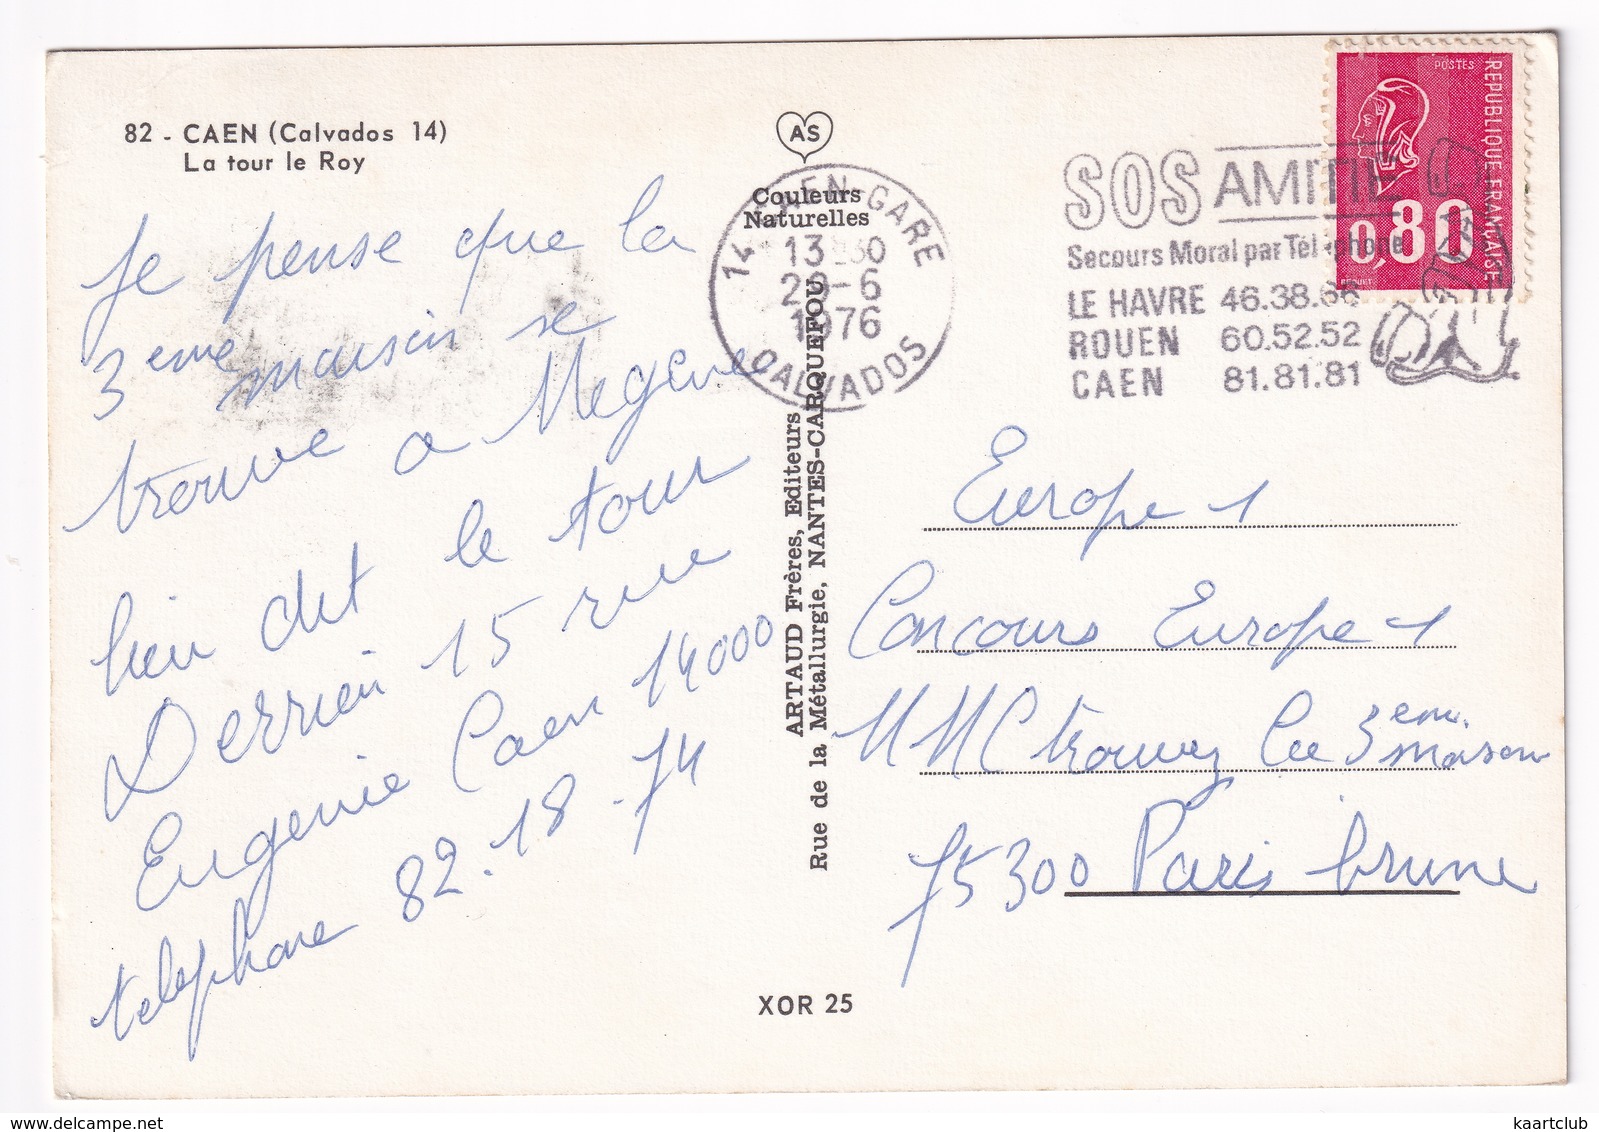 82 - CAEN (Calvados 14)
La tour le Roy
Je pense que la
3eme maison se
trouve a Megève
lieu dit le tour
Derrien 15 rue
Eugenie Caen 14000
telephone 82.18.74
AS
Couleurs
Naturelles
ARTAUD Frères, Editeurs
Rue de la Métallurgie, NANTES-CARQUEFOU
XOR 25
14 CAEN-GARE
13 30
29-6
1976
CALVADOS
SOS AMITIE
Secours Moral par Téléphone
LE HAVRE 46.38.66
ROUEN 60.52.52
CAEN 81.81.81
POSTES
REPUBLIQUE FRANÇAISE
0,80
BEQUET
Europe 1
Concours Europe 1
trouvez la 3eme maison
75300 Paris brune
kaartclub